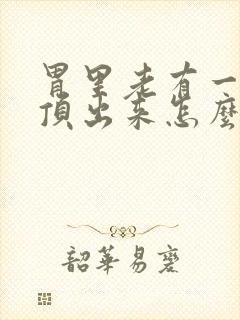 胃里老有一
顶出来怎麼
韶華易逝